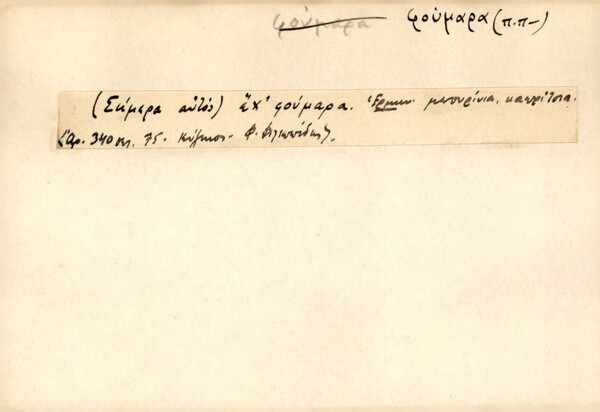 φούμαρα φούμαρα (π.π-)
(Σήμερα αὐτός) ἔχ' φούμαρα. Ἑρμην. μπουρίνια, καπρίτσια.
(Ἀρ. 340 σελ. 75 - Κύζικος - Φ. Φιλιππίδης).